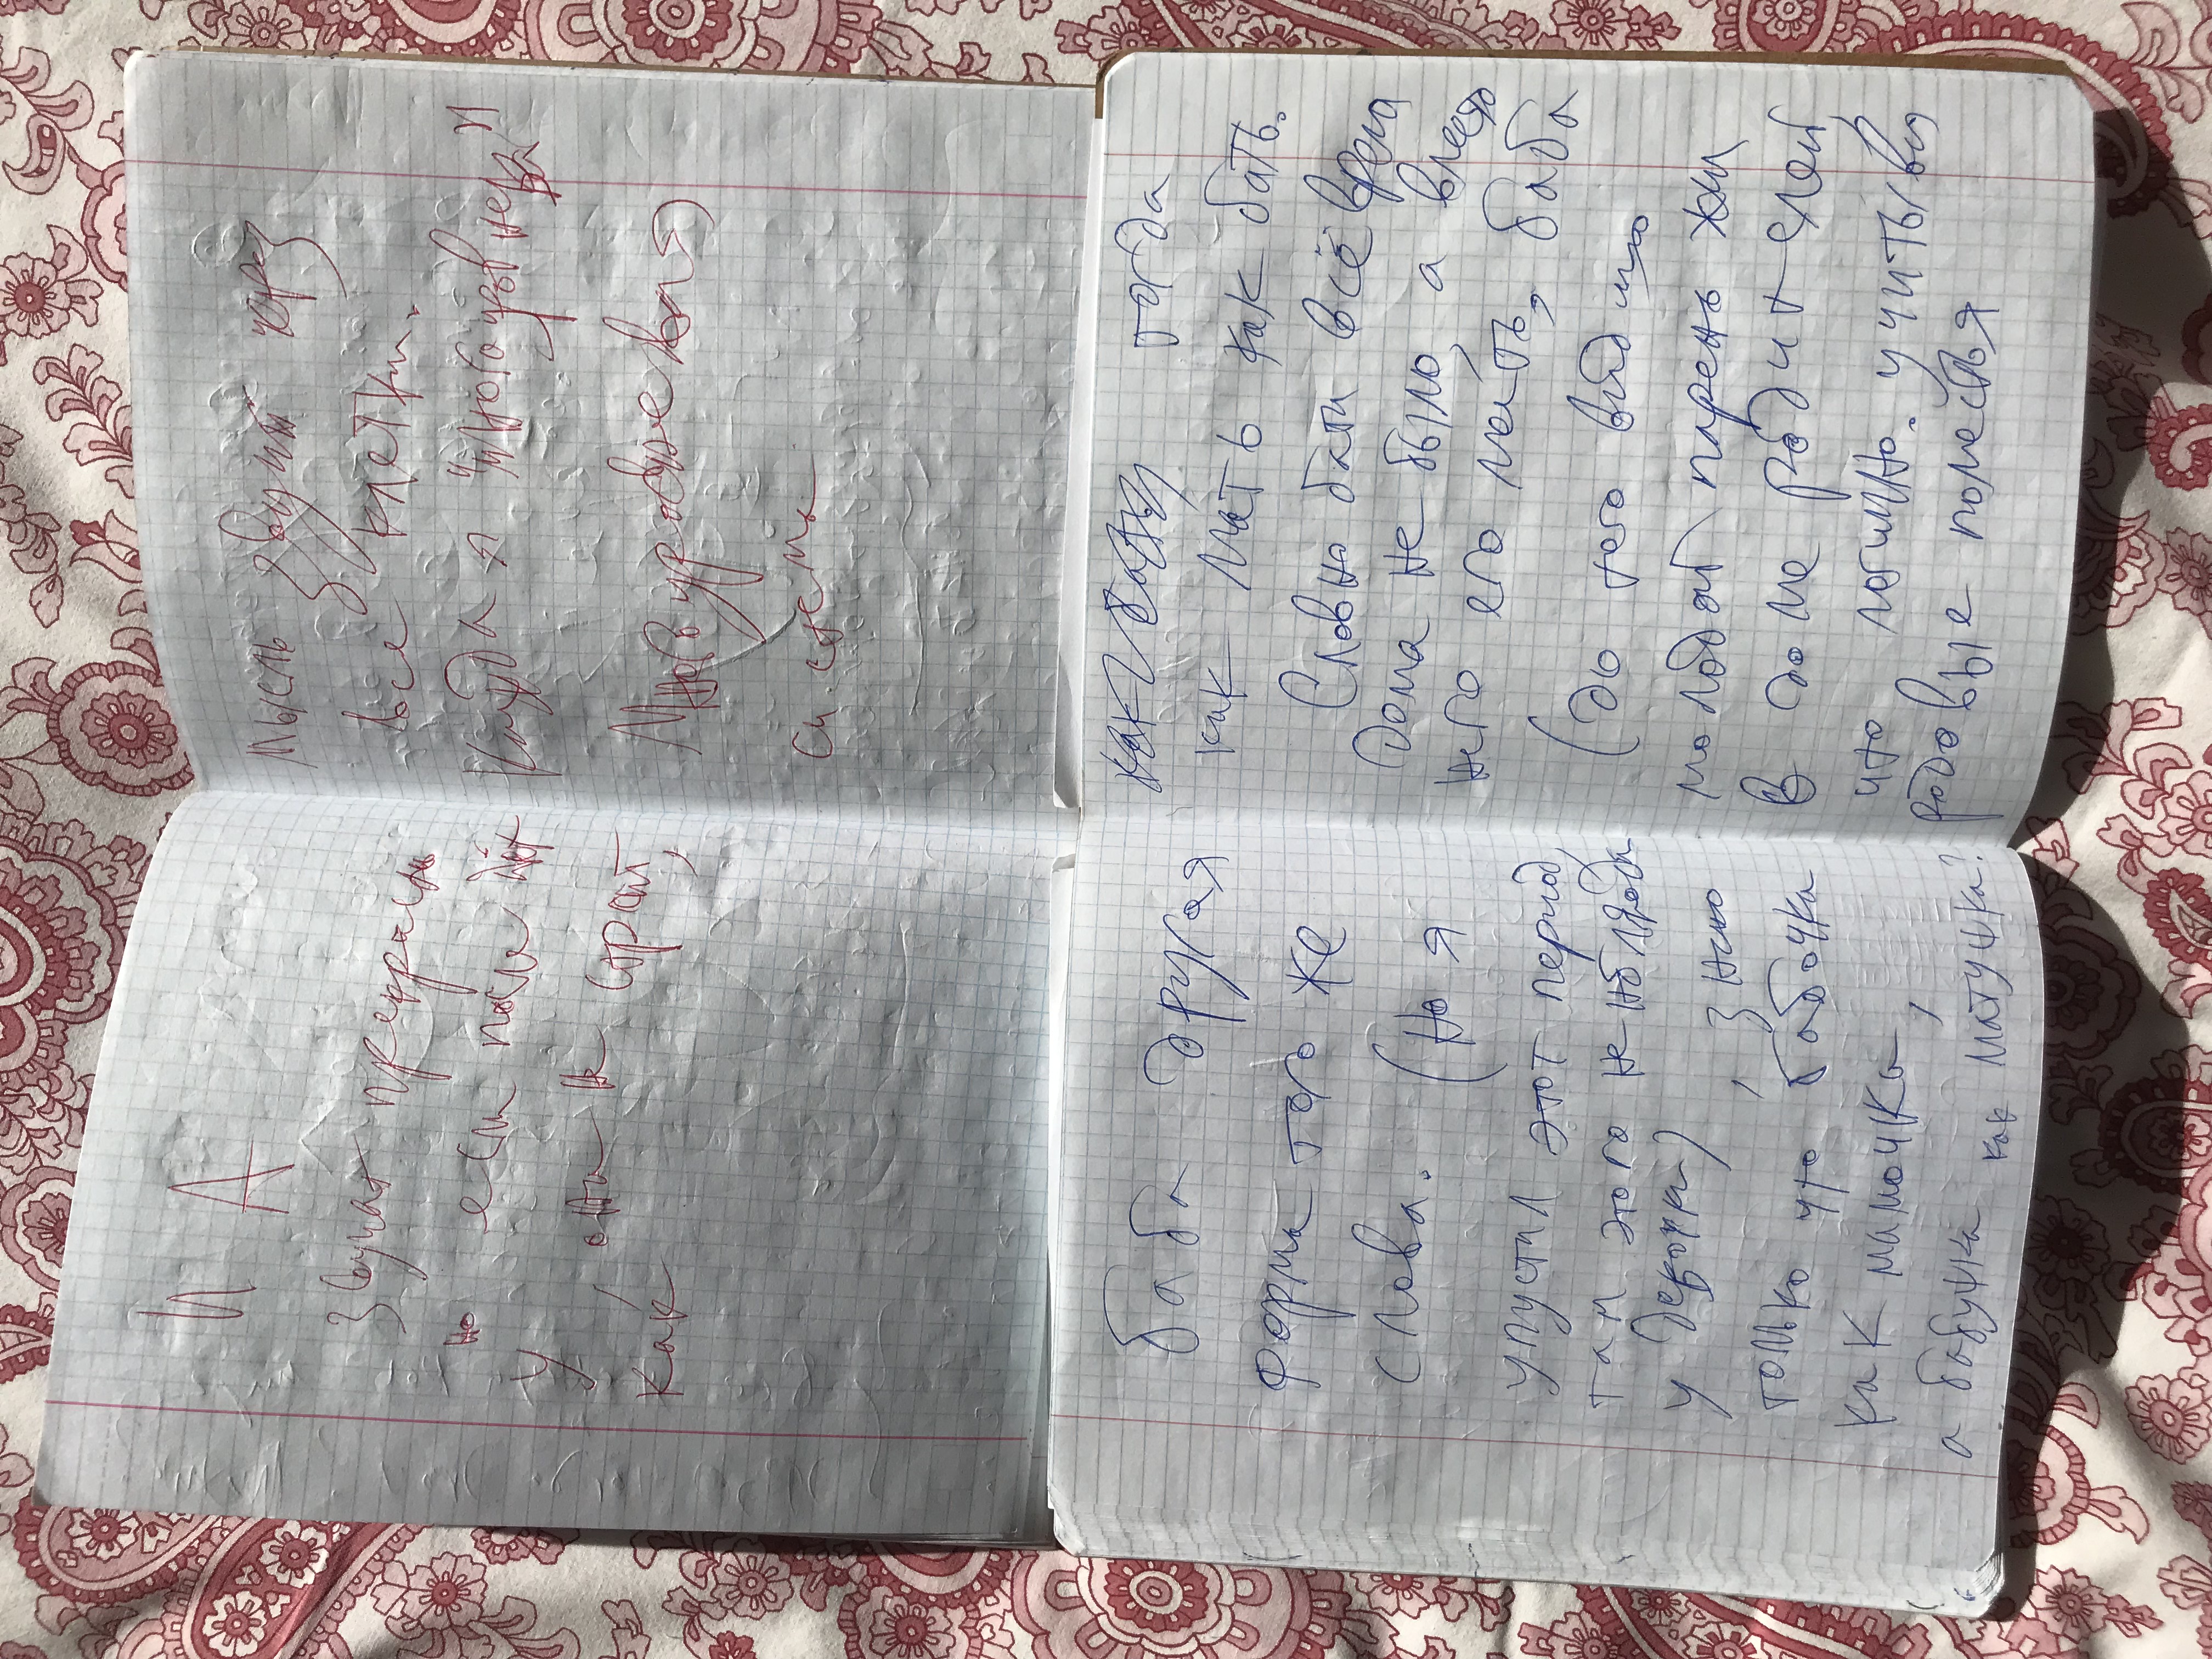 И А
Звучат прекрасно
но если после идёт
У, они не строят,
как
мысль звучит через
все клетки.
Когда я "многоуровнева"
Многоуровневая
система
баба другая
форма того же
слова. (Но я
упустил этот период,
там этого не
у девочки), знаю
только что бабочка
как мамочка,
а бабушка как матушка?
тогда
как мать как бать.
Словно бати всё время
дома не было, а вместо
него его мать, баба
(до того видимо
молодой парень жил
в доме родителей,
что логично. учитывая
родовые поместья